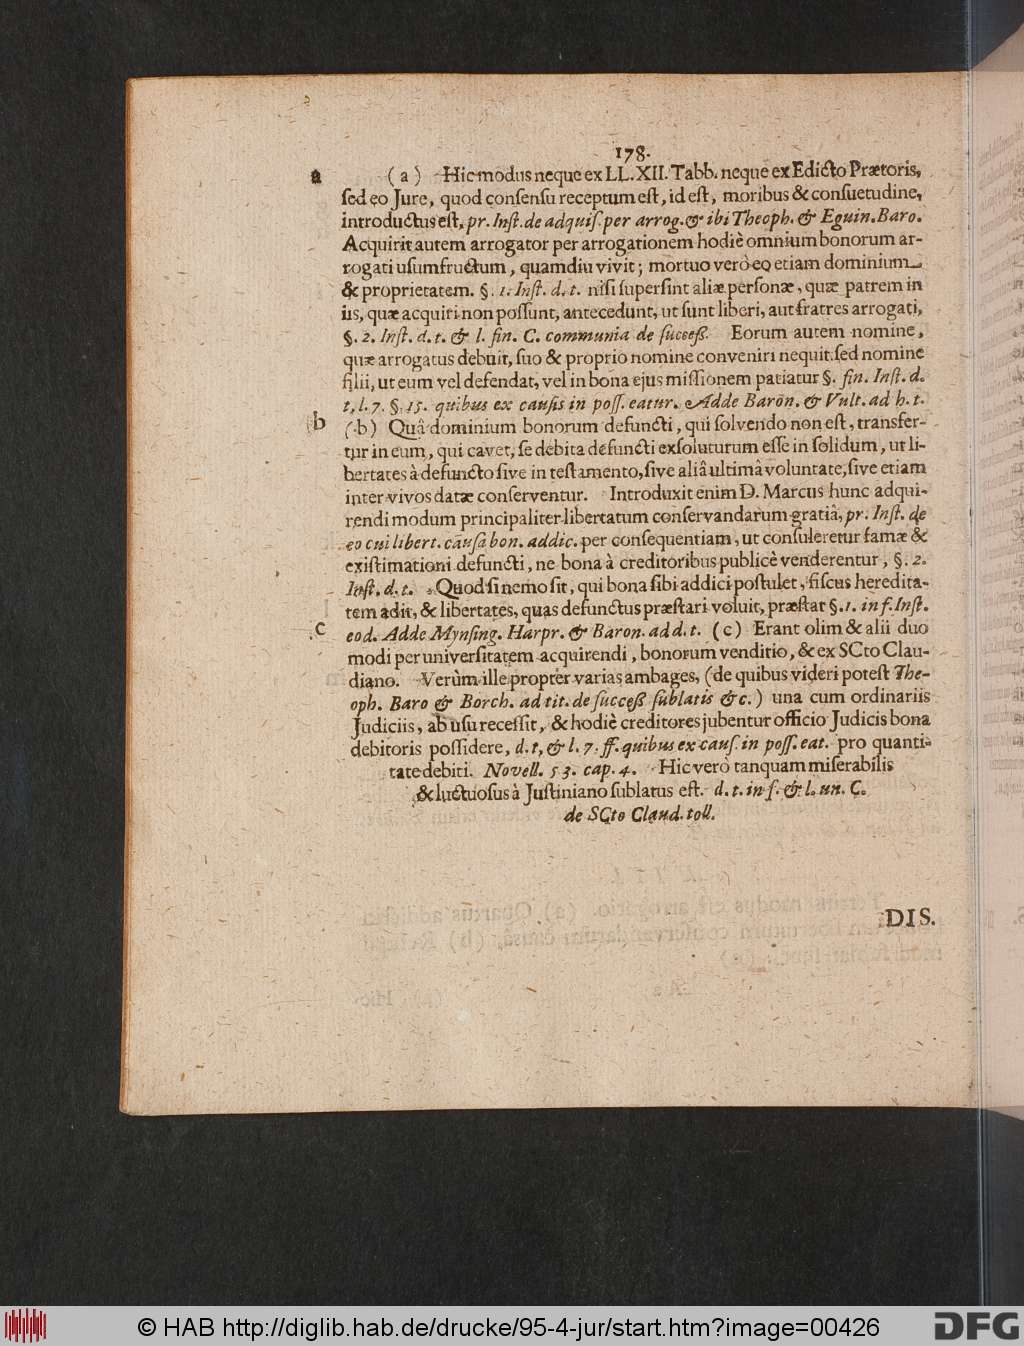 178.
a (a) Hic modus neque ex LL. XII. Tabb. neque ex Edicto Prætoris,
sed eo Jure, quod consensu receptum est, id est, moribus & consuetudine,
introductus est, pr. Inst. de adquis. per arrog. & ibi Theoph. & Eguin. Baro.
Acquirit autem arrogator per arrogationem hodiè omnium bonorum ar-
rogati usumfructum, quamdiu vivit; mortuo verò eo etiam dominium
& proprietatem. §. 1. Inst. d. t. nisi supersint aliæ personæ, quæ patrem in
iis, quæ acquiri non possunt, antecedunt, ut sunt liberi, aut fratres arrogati,
§. 2. Inst. d. t. & l. fin. C. communia de success. Eorum autem nomine,
quæ arrogatus debuit, suo & proprio nomine conveniri nequit, sed nomine
filii, ut eum vel defendat, vel in bona ejus missionem patiatur §. fin. Inst. d.
t, l. 7. §. 15. quibus ex causis in poss. eatur. Adde Baron. & Vult. ad h. t.
b (b) Quâ dominium bonorum defuncti, qui solvendo non est, transfer-
tur in eum, qui cavet, se debita defuncti exsoluturum esse in solidum, ut li-
bertates à defuncto sive in testamento, sive aliâ ultimâ voluntate, sive etiam
inter vivos datæ conserventur. Introduxit enim D. Marcus hunc adqui-
rendi modum principaliter libertatum conservandarum gratiâ, pr. Inst. de
eo cui libert. causa bon. addic. per consequentiam, ut consuleretur famæ &
existimationi defuncti, ne bona à creditoribus publicè venderentur, §. 2.
Inst. d. t. Quod si nemo sit, qui bona sibi addici postulet, fiscus heredita-
tem adit, & libertates, quas defunctus præstari voluit, præstat §. 1. in f. Inst.
c eod. Adde Mynsing. Harpr. & Baron. ad d. t. (c) Erant olim & alii duo
modi per universitatem acquirendi, bonorum venditio, & ex SCto Clau-
diano. Verùm ille propter varias ambages, (de quibus videri potest The-
oph. Baro & Borch. ad tit. de success sublatis &c.) una cum ordinariis
Judiciis, ab usu recessit, & hodiè creditores jubentur officio Judicis bona
debitoris possidere, d. t, & l. 7. ff. quibus ex caus. in poss. eat. pro quanti-
tate debiti. Novell. 53. cap. 4. Hic verò tanquam miserabilis
& luctuosus à Justiniano sublatus est. d. t. in f. & l. un. C.
de SCto Claud. toll.
DIS.
© HAB http://diglib.hab.de/drucke/95-4-jur/start.htm?image=00426
DFG